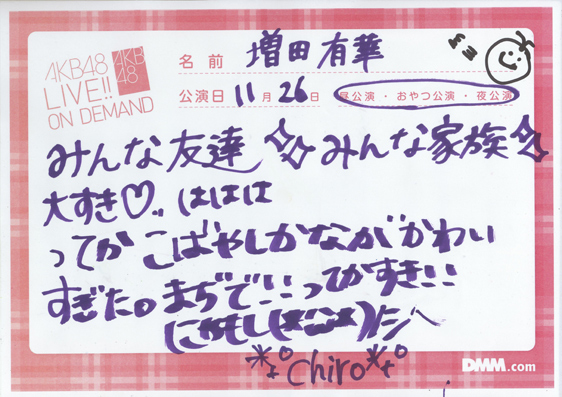 AKB48
LIVE!!
ON DEMAND
AKB
48
名前 増田有華
公演日 11月26日 昼公演・おやつ公演・夜公演
みんな友達 みんな家族
大すき♡ ははは
ってか こばやしかながかわい
すぎた。まぢで!!ってかすき!!
*+°Chiro*+°
DMM.com